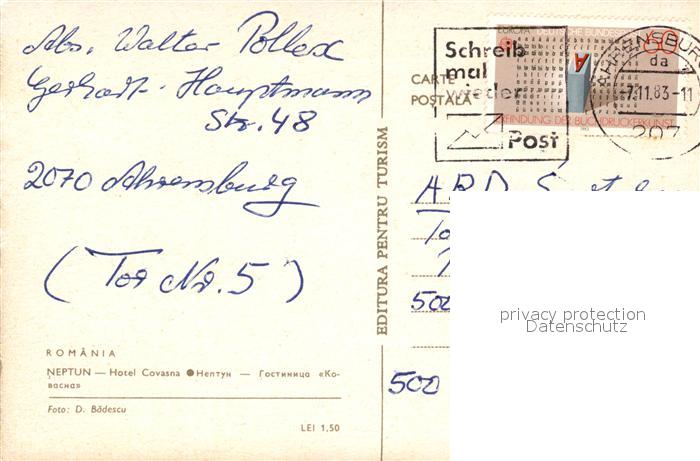 Abs. Walter Pollex
Gerhart-Hauptmann
Str. 48
2070 Ahrensburg
(Tor Nr. 5)
ROMÂNIA
NEPTUN — Hotel Covasna ● Нептун — Гостиница «Ко-
васна»
Foto: D. Bădescu
LEI 1,50
EDITURA PENTRU TURISM
CARTE
POŞTALĂ
EUROPA DEUTSCHE BUNDESPOST 60
A
ERFINDUNG DER BUCHDRUCKERKUNST
Schreib
mal
wieder
Post
AHRENSBURG
da
-7.11.83-11
207
ARD
500
500
privacy protection
Datenschutz